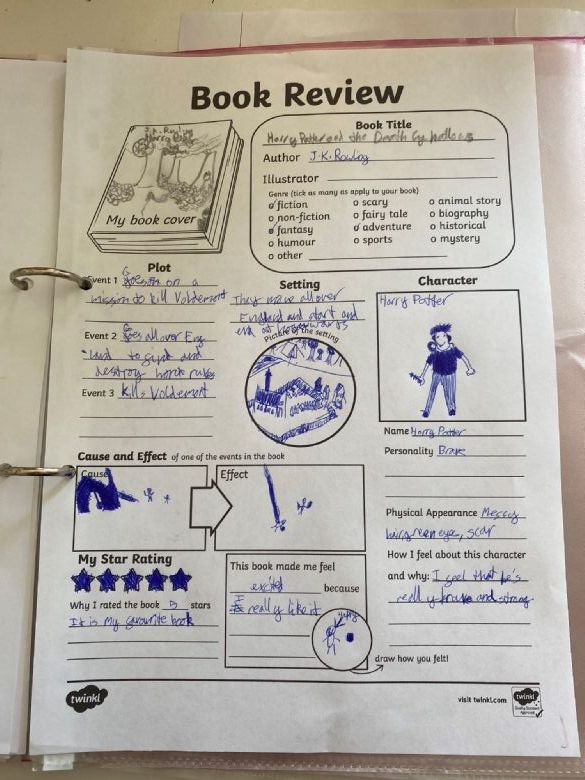 Book Review
J.K. Rowling
Harry Potter
My book cover
Book Title
Harry Potter and the Death ly hallows
Author J.K. Rowling
Illustrator
Genre (tick as many as apply to your book)
fiction
non-fiction
fantasy
humour
other
scary
fairy tale
adventure
sports
animal story
biography
historical
mystery
Plot
Event 1 Goes on a
mission to kill Voldemort
Event 2 Goes all over Eng
land to find and
destroy horu ruxes
Event 3 kills Voldemort
Setting
They move all over
England and start and
end at
Picture of the setting
Character
Harry Potter
Name Harry Potter
Personality Brave
Physical Appearance Messy
hair, green eye, scar
How I feel about this character
and why: I feel that he's
really brave and strong
Cause and Effect of one of the events in the book
Cause
Effect
My Star Rating
Why I rated the book 5 stars
It is my favourite book
This book made me feel
excited because
I really like it
draw how you felt!
twinkl
visit twinkl.com
twinkl
Quality Standard
Approved